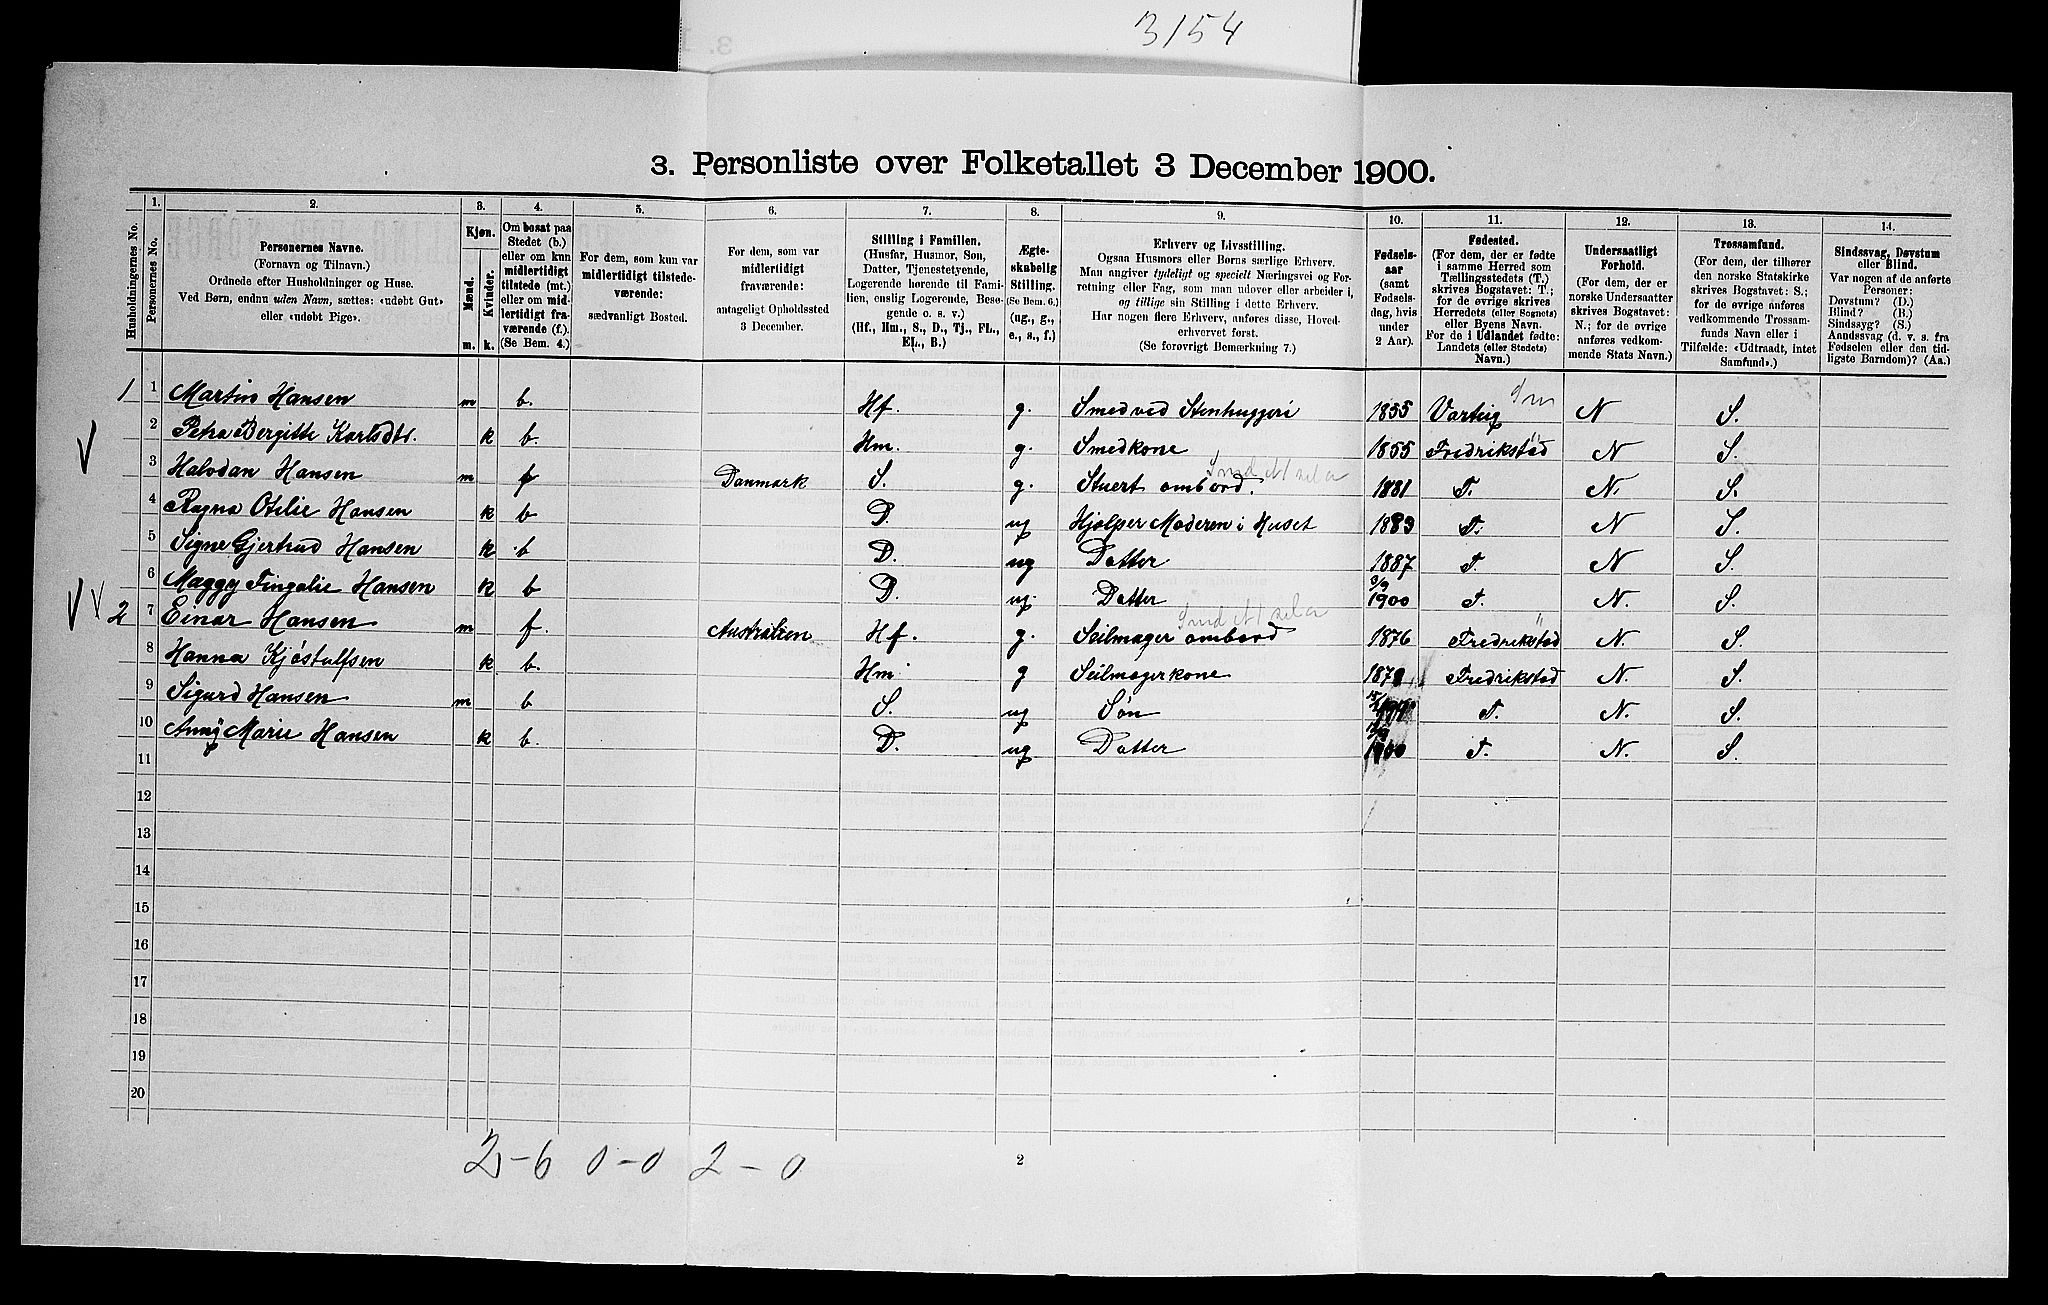 3154
3. Personliste over Folketallet 3 December 1900.
Husholdningernes No.
1. Personernes No.
2. Personernes Navne.
(Fornavn og Tilnavn.)
Ordnede efter Husholdninger og Huse.
Ved Børn, endnu uden Navn, sættes: «udøbt Gut»
eller «udøbt Pige».
3. Kjøn.
Mænd. m.
Kvinder. k.
4. Om bosat paa
Stedet (b.)
eller om kun
midlertidigt
tilstede (mt.)
eller om mid-
lertidigt fra-
værende (f.).
(Se Bem. 4.)
5. For dem, som kun var
midlertidigt tilstede-
værende:
sædvanligt Bosted.
6. For dem, som var
midlertidigt
fraværende:
antageligt Opholdssted
3 December.
7. Stilling i Familien.
(Husfar, Husmor, Søn,
Datter, Tjenestetyende,
Logerende hørende til Fami-
lien, enslig Logerende, Besø-
gende o. s. v.)
(Hf., Hm., S., D., Tj., FL.,
EL., B.)
8. Ægte-
skabelig
Stilling.
(Se Bem. 6.)
(ug., g.,
e., s., f.)
9. Erhverv og Livsstilling.
Ogsaa Husmors eller Børns særlige Erhverv.
Man angiver tydeligt og specielt Næringsvei og For-
retning eller Fag, som man udover eller arbeider i,
og tillige sin Stilling i dette Erhverv.
Har nogen flere Erhverv, anføres disse, Hoved-
erhvervet først.
(Se forøvrigt Bemærkning 7.)
10. Fødsels-
aar
(samt
Fødsels-
dag, hvis
under
2 Aar).
11. Fødested.
(For dem, der er fødte
i samme Herred som
Tællingsstedets (T.)
skrives Bogstavet: T.;
for de øvrige skrives
Herredets (eller Sognets)
eller Byens Navn.
For de i Udlandet fødte:
Landets (eller Stedets)
Navn.)
12. Undersaatligt
Forhold.
(For dem, der er
norske Undersaatter
skrives Bogstavet:
N.; for de øvrige
anføres vedkom-
mende Stats Navn.)
13. Trossamfund.
(For dem, der tilhører
den norske Statskirke
skrives Bogstavet: S.;
for de øvrige anføres
vedkommende Trossam-
funds Navn eller i
Tilfælde: «Udtraadt, intet
Samfund».)
14. Sindssvag, Døvstum
eller Blind.
Var nogen af de anførte
Personer:
Døvstum? (D.)
Blind? (B.)
Sindssyg? (S.)
Aandssvag (d. v. s. fra
Fødselen eller den tid-
ligste Barndom)? (Aa.)
1 1 Martin Hansen m b. Hf. g. Smed ved Stenhuggeri 1855 Varteig N S.
2 Petra Bergitte Karlsdtr. k b. Hm. g. Smedkone 1855 Fredrikstad N S.
3 Halvdan Hansen m f Danmark S. g. Stuert ombord. 1881 T. N. S.
4 Ragna Otilie Hansen k b D. ug Hjælper Moderen i Huset 1883 T. N S.
5 Signe Gjertrud Hansen k b D. ug Datter 1887 T. N S.
6 Maggy Fingalie Hansen k b D. ug. Datter 3/9 1900 T. N. S.
2 7 Einar Hansen m f. Australien Hf. g. Seilmager ombord 1876 Fredrikstad N. S.
8 Hanna Kjøstulfsen k b. Hm. g Seilmagerkone Fredrikstad N. S.
9 Sigurd Hansen m b S. ug Søn T. N. S.
10 Anny Marie Hansen k b. D. ug Datter 1900 T. N. S.
11
12
13
14
15
16
17
18
19
20
2-6 0-0 2-0
2